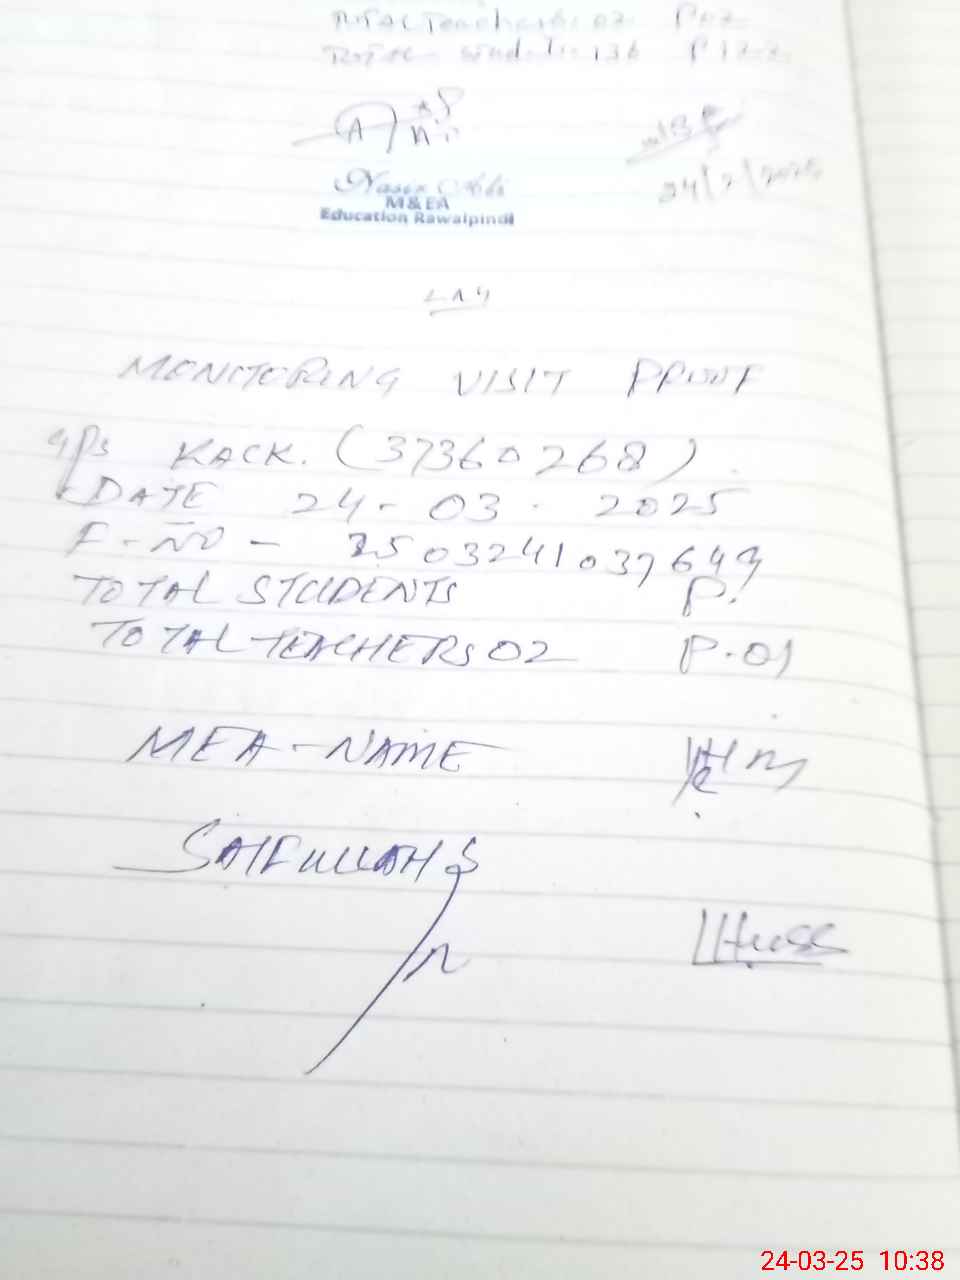 TOTAL Teachers: 02 P 02
TOTAL Students 136 P 122
Nasir Ali
M&EA
Education Rawalpindi
24/2/2025
MONITORING VISIT PROOF
GPS KACK. (37360268)
DATE 24-03-2025
F-NO - 2503241037643
TOTAL STUDENTS P.
TOTAL TEACHERS 02 P.01
MEA-NAME
SAIFULLAH
24-03-25 10:38